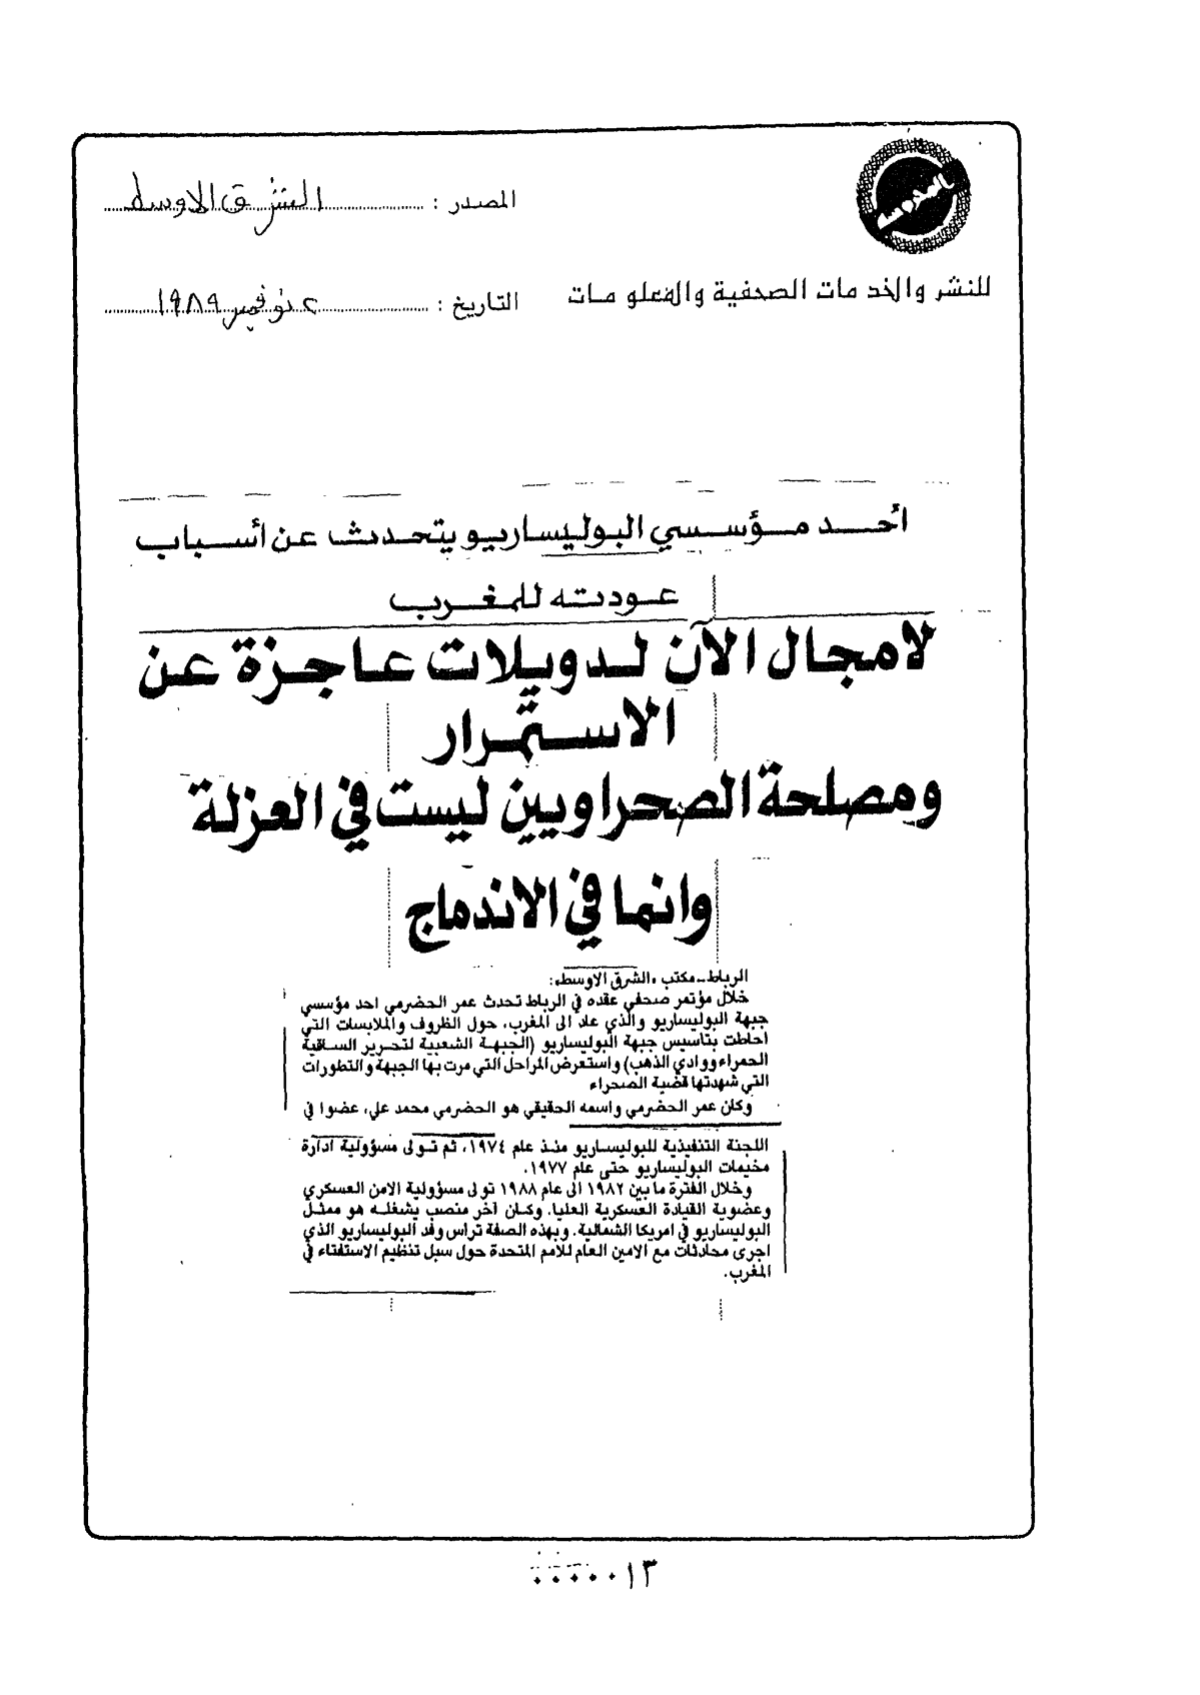 المصدر : الشرق الاوسط
للنشر والخدمات الصحفية والمعلومات
التاريخ : نوفمبر ١٩٨٩
أحد مؤسسي البوليساريو يتحدث عن أسباب
عودته للمغرب
لا مجال الآن لدويلات عاجزة عن
الاستمرار
ومصلحة الصحراويين ليست في العزلة
وانما في الاندماج
الرباط ـ مكتب «الشرق الاوسط»:
خلال مؤتمر صحفي عقده في الرباط تحدث عمر الحضرمي احد مؤسسي
جبهة البوليساريو والذي عاد الى المغرب، حول الظروف والملابسات التي
احاطت بتاسيس جبهة البوليساريو (الجبهة الشعبية لتحرير الساقية
الحمراء ووادي الذهب) واستعرض المراحل التي مرت بها الجبهة والتطورات
التي شهدتها قضية الصحراء
وكان عمر الحضرمي واسمه الحقيقي هو الحضرمي محمد علي، عضوا في
اللجنة التنفيذية للبوليساريو منذ عام ١٩٧٤، ثم تولى مسؤولية ادارة
مخيمات البوليساريو حتى عام ١٩٧٧.
وخلال الفترة ما بين ١٩٨٢ الى عام ١٩٨٨ تولى مسؤولية الامن العسكري
وعضوية القيادة العسكرية العليا. وكان آخر منصب يشغله هو ممثل
البوليساريو في امريكا الشمالية. وبهذه الصفة تراس وفد البوليساريو الذي
اجرى محادثات مع الامين العام للامم المتحدة حول سبل تنظيم الاستفتاء في
المغرب.
٠٠٠٠٠١٣